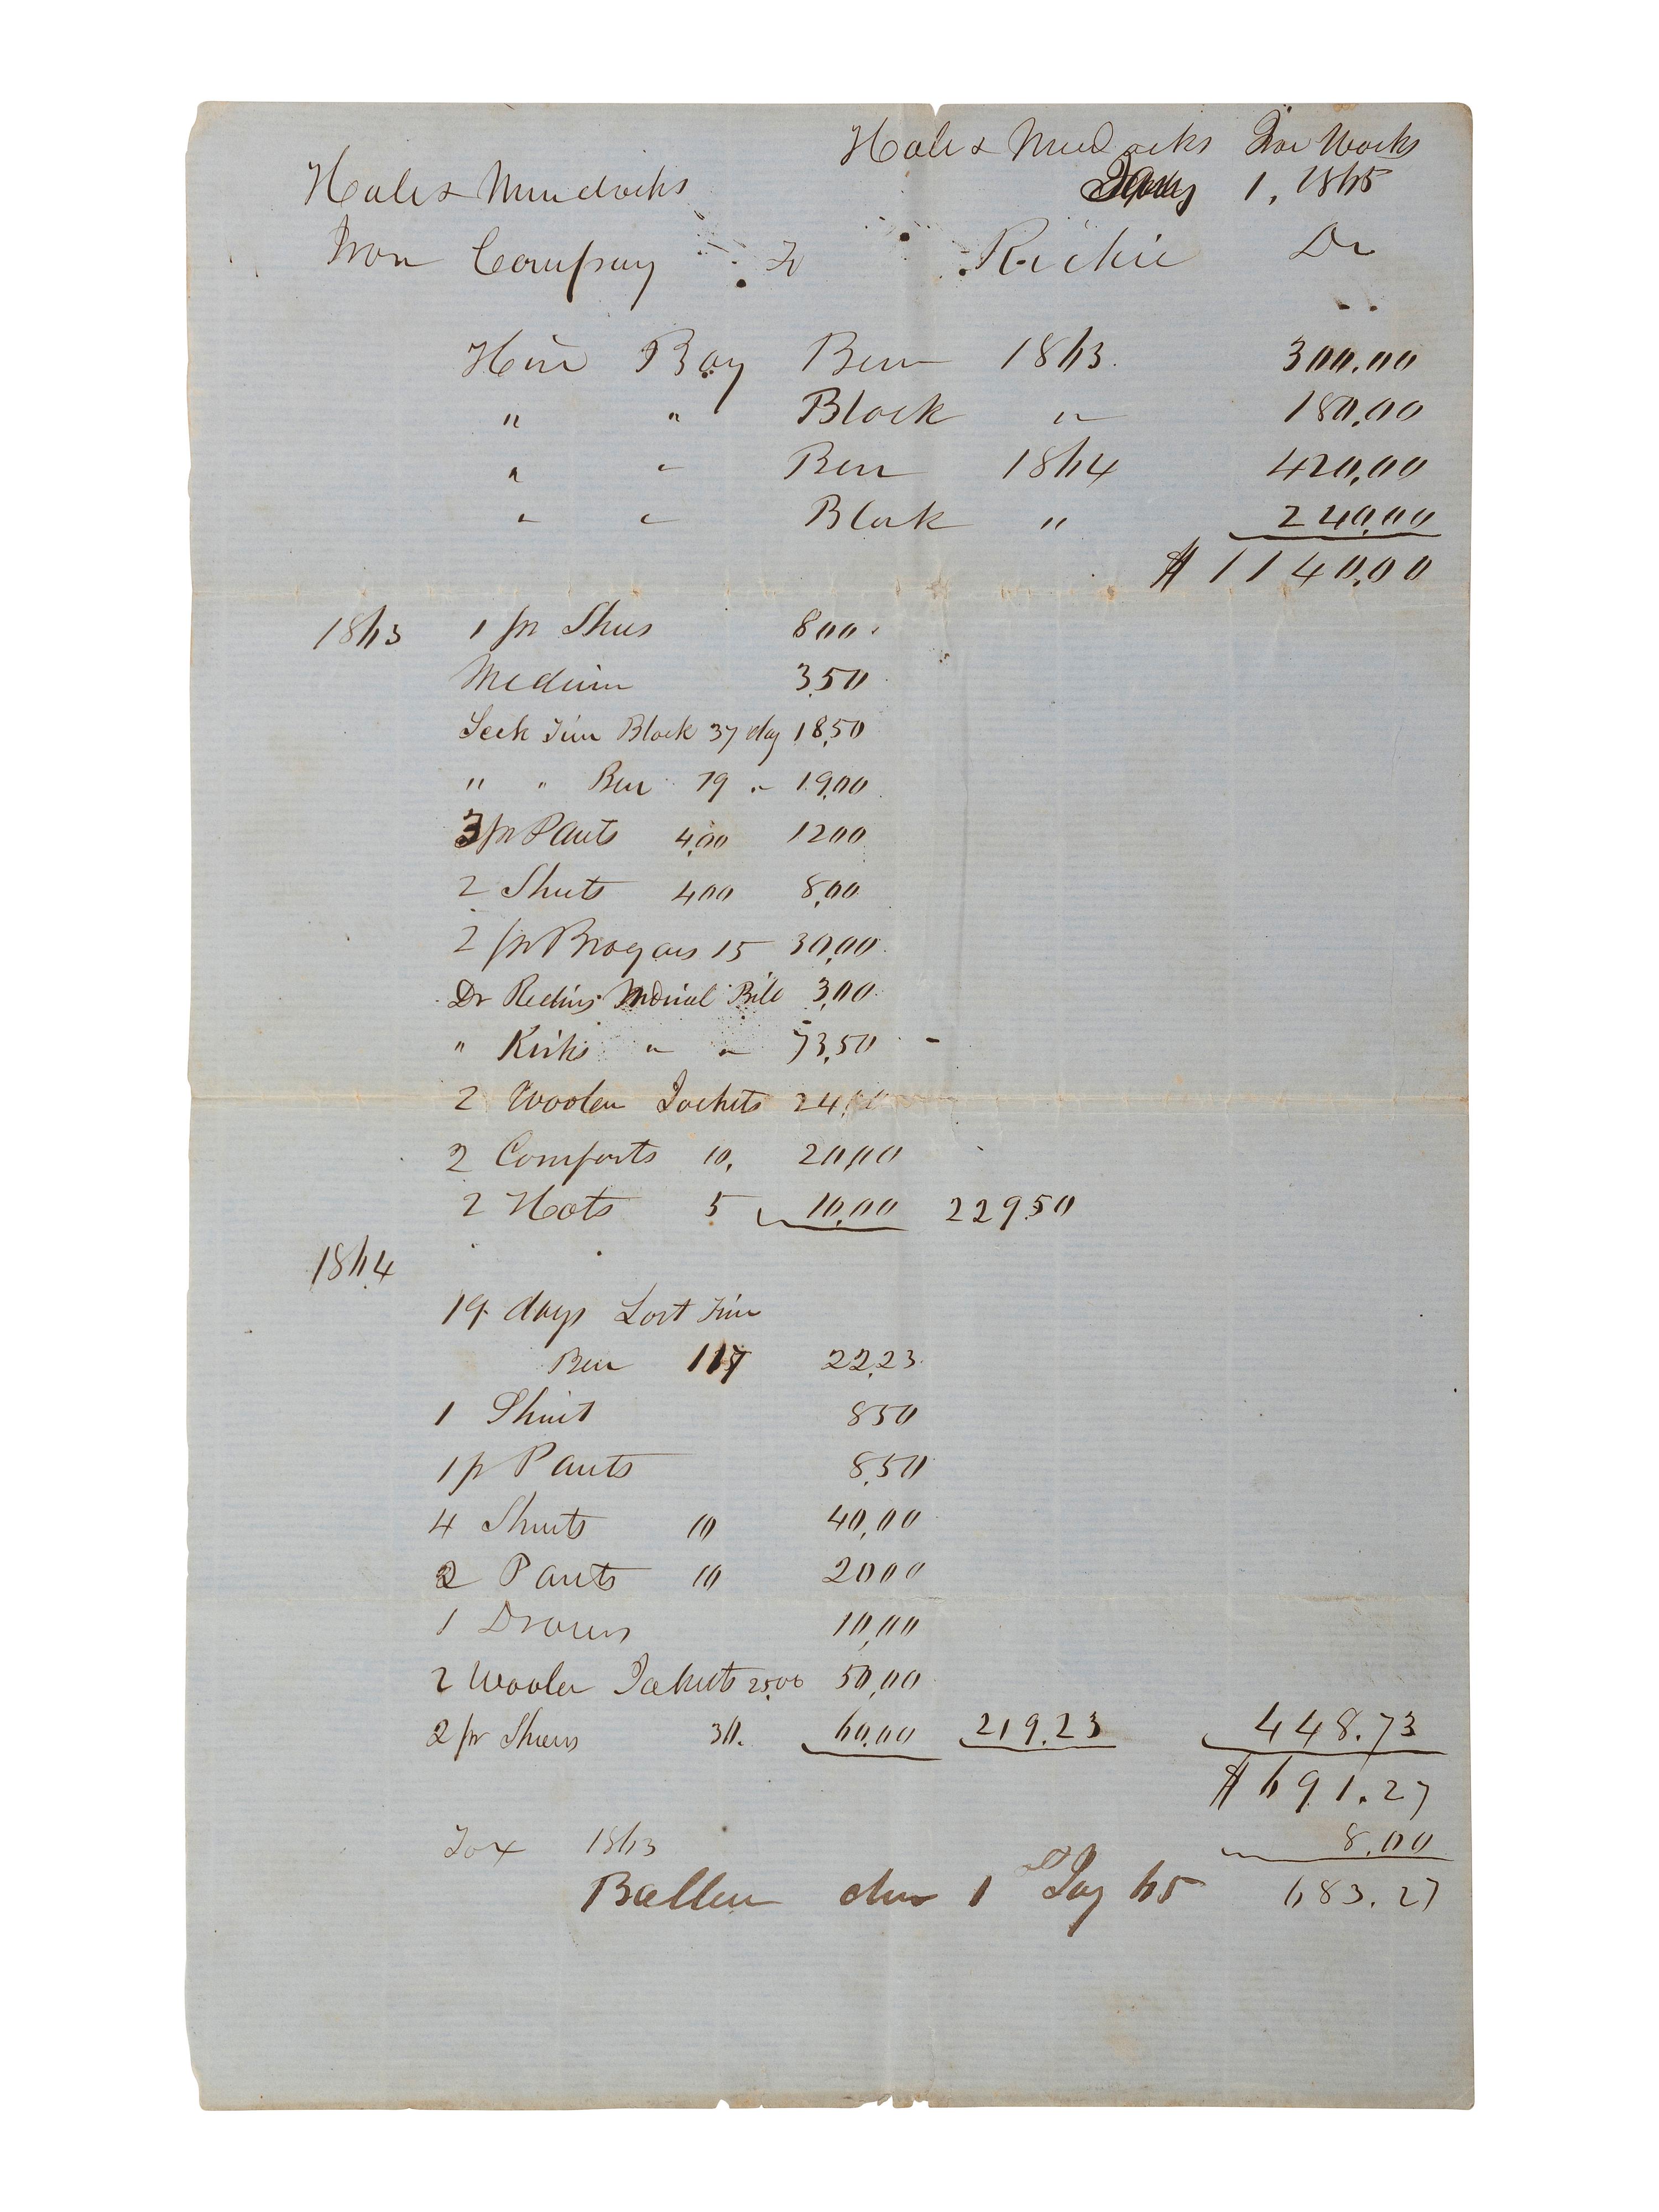 Hale & Murdocks Iron Works
Jany 1, 1865
Hale & Murdocks
Iron Company To Richie Dr
Hire Boy Ben 1863. 300.00
" " Block " 180.00
" " Ben 1864 420.00
" " Block " 240.00
$1140.00
1863 1 pr Shues 800
Medium 3.50
Seek Time Block 37 day 18.50
" " Ben 19 " 19.00
3 pr Pants 4.00 1200
2 Shirts 400 8.00
2 pr Brogans 15 30.00
Dr Bill 3.00
" Kirks " " 73.50
2 Woolen Jackets 24.00
2 Comforts 10. 20.00
2 Hats 5 10.00 229.50
1864
19 days Lost Time
Ben 117 22.23
1 Shirt 850
1 pr Pants 8.50
4 Shirts 10 40.00
2 Pants 10 2000
1 Drawers 10.00
2 Woolen Jackets 25.00 50.00
2 pr Shues 30. 60.00 219.23 448.73
$691.27
Tax 1863 8.00
Ballen due 1st Jay 65 683.27